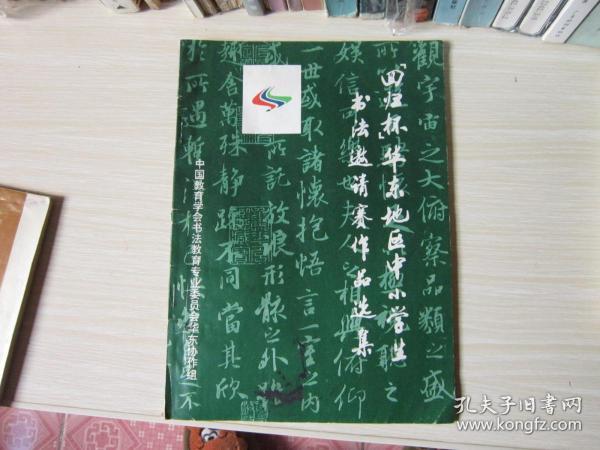 「回归杯」华东地区中小学生
书法邀请赛作品选集
中国教育学会书法教育专业委员会华东协作组
觀宇宙之大俯察品類之盛
所
娱信可樂也夫人之相與俯仰
一世或取諸懷抱悟言一室之内
或
所託放浪形骸之外
趣舍萬殊静躁不同當其欣
於所遇暫
不
孔夫子旧书网
www.kongfz.com